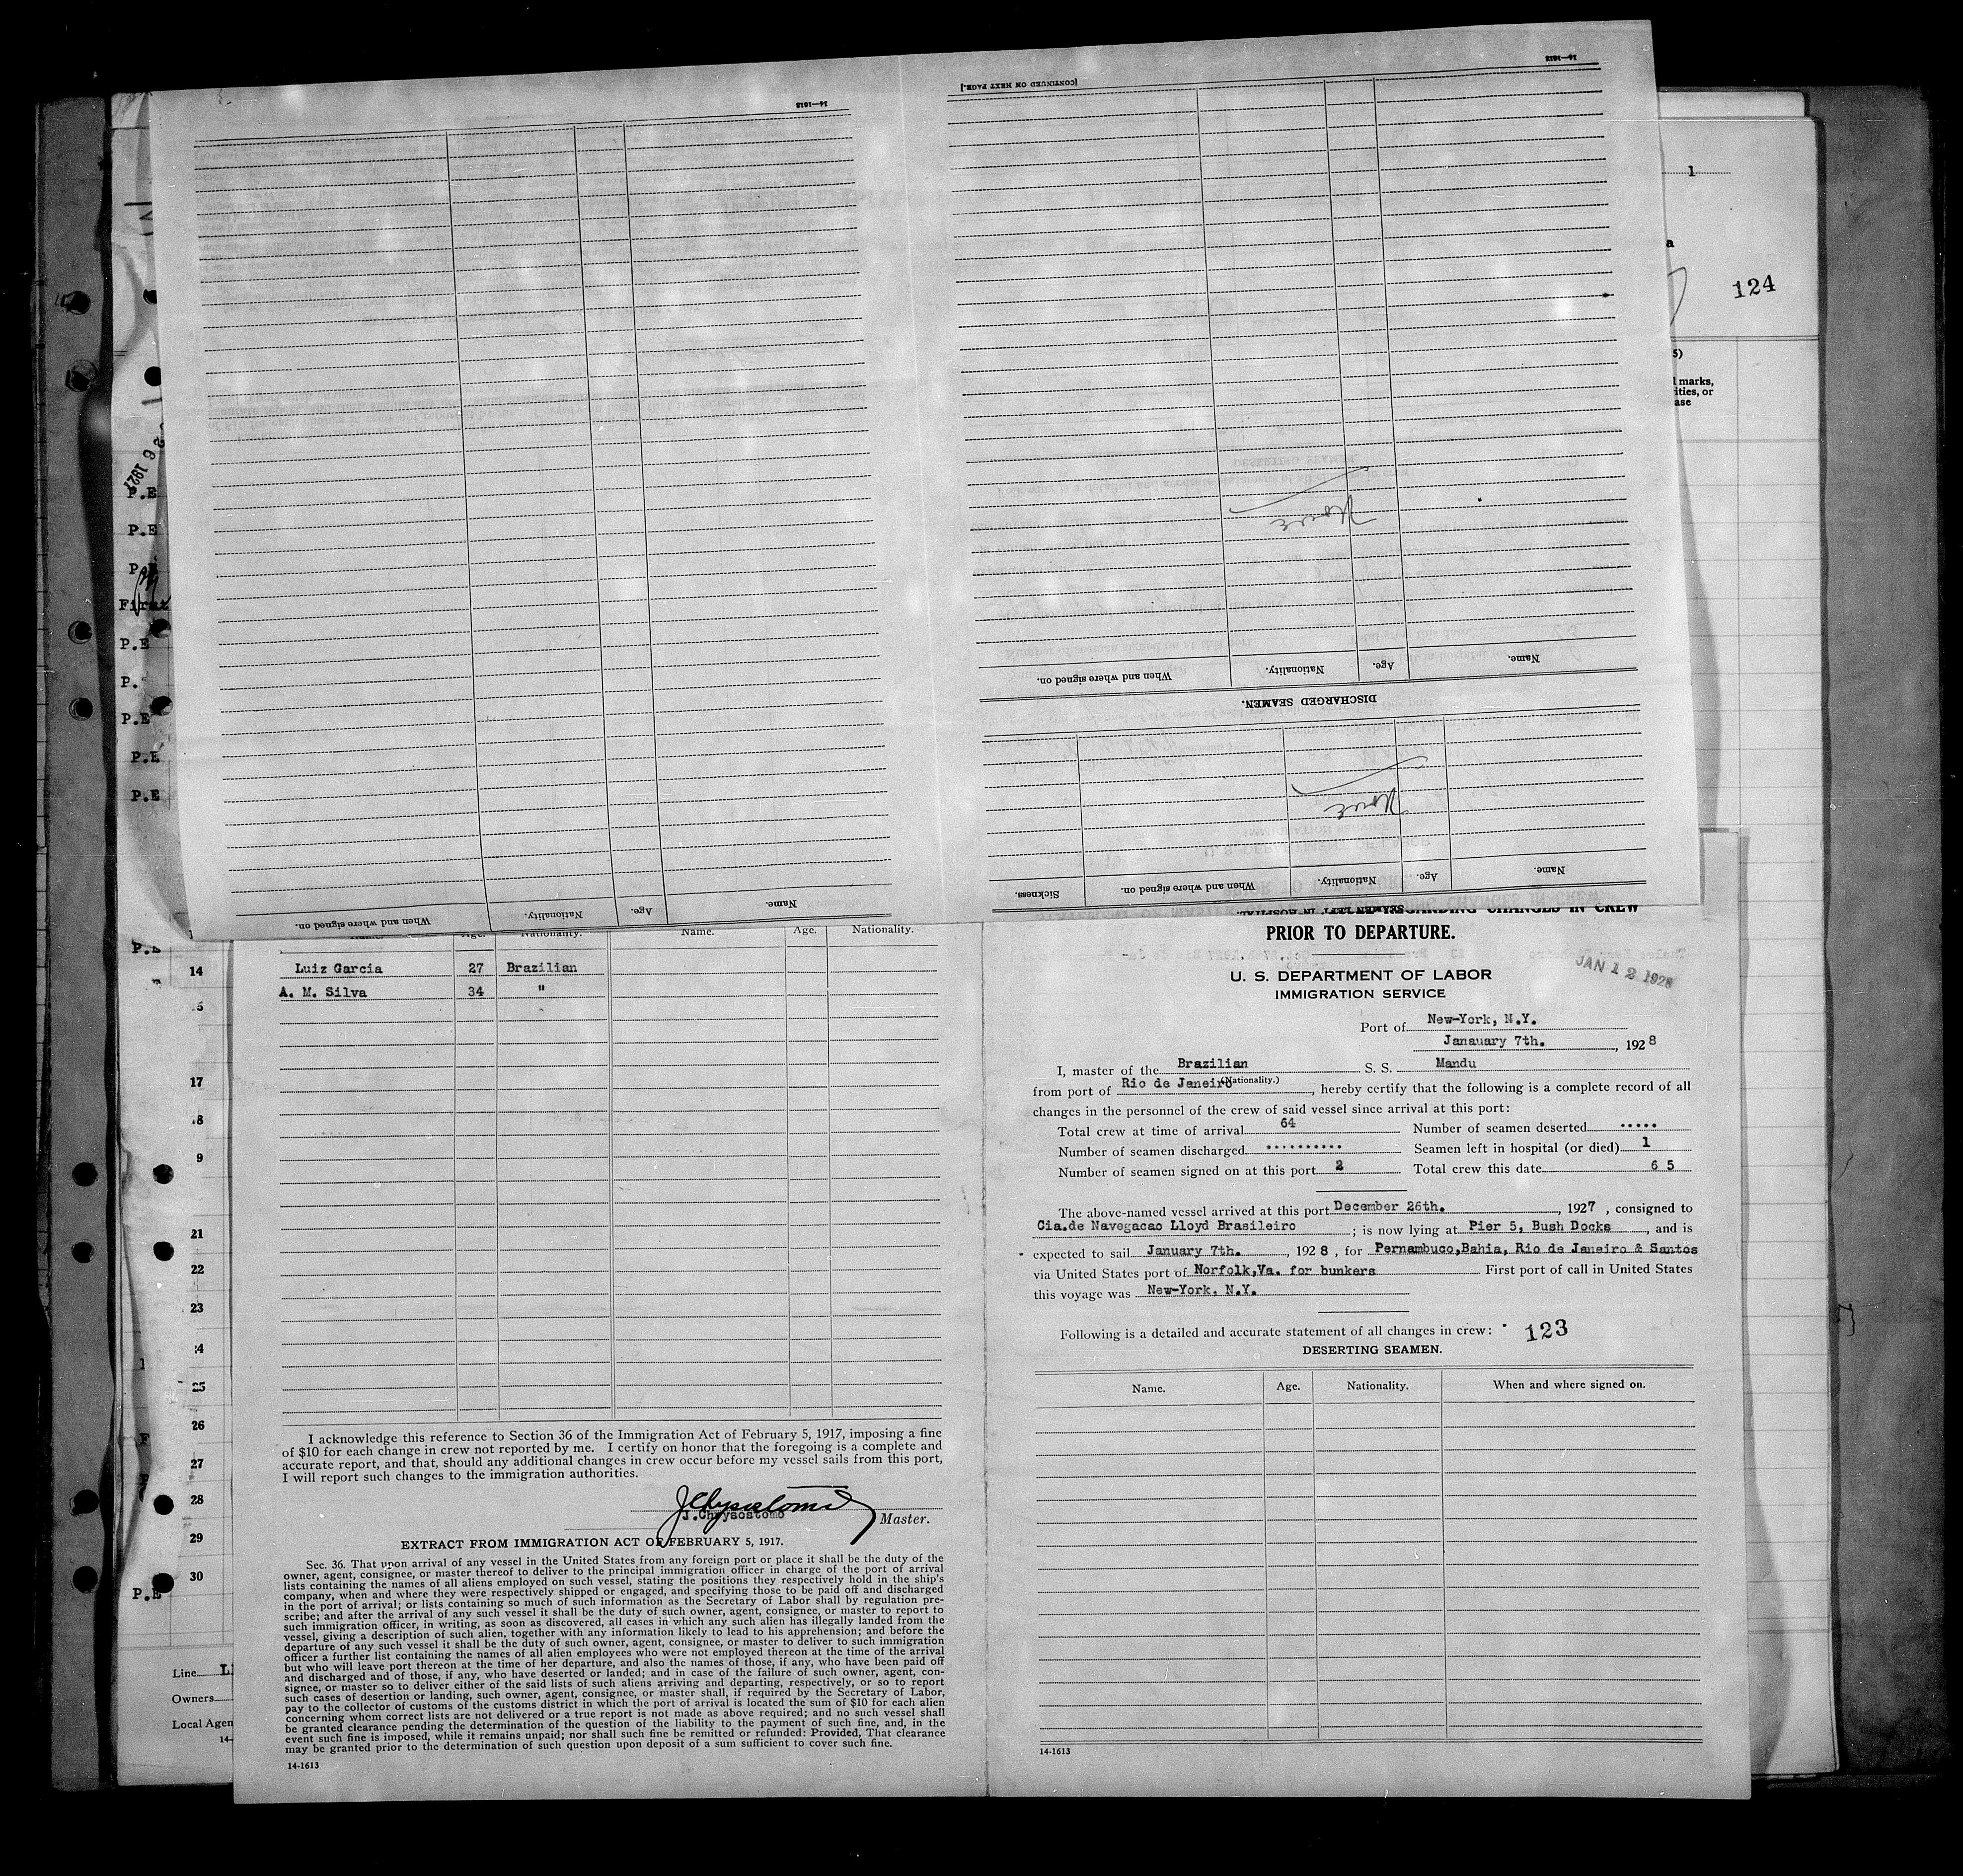 14—1613
When and where signed on.
Nationality.
Age.
Name.
[CONTINUED ON NEXT PAGE.]
14—1613
None
When and where signed on.
Nationality.
Age.
Name.
DISCHARGED SEAMEN.
None
Sickness.
When and where signed on.
Nationality.
Age.
Name.
SEAMEN LEFT IN HOSPITAL.
1
a
124
5)
l marks,
ities, or
ase
6 1927
P.E
P.E
First
P.E
P.
P.E
P.E
P.E
14
17
9
21
22
23
25
26
27
28
29
30
P.E
Line
Owners
Local Agen
14-
Nationality. Name. Age. Nationality.
Luiz Garcia 27 Brazilian
A. M. Silva 34 "
I acknowledge this reference to Section 36 of the Immigration Act of February 5, 1917, imposing a fine
of $10 for each change in crew not reported by me. I certify on honor that the foregoing is a complete and
accurate report, and that, should any additional changes in crew occur before my vessel sails from this port,
I will report such changes to the immigration authorities.
JChrysostomo
J.Chrysostomo
Master.
EXTRACT FROM IMMIGRATION ACT OF FEBRUARY 5, 1917.
Sec. 36. That upon arrival of any vessel in the United States from any foreign port or place it shall be the duty of the
owner, agent, consignee, or master thereof to deliver to the principal immigration officer in charge of the port of arrival
lists containing the names of all aliens employed on such vessel, stating the positions they respectively hold in the ship's
company, when and where they were respectively shipped or engaged, and specifying those to be paid off and discharged
in the port of arrival; or lists containing so much of such information as the Secretary of Labor shall by regulation pre-
scribe; and after the arrival of any such vessel it shall be the duty of such owner, agent, consignee, or master to report to
such immigration officer, in writing, as soon as discovered, all cases in which any such alien has illegally landed from the
vessel, giving a description of such alien, together with any information likely to lead to his apprehension; and before the
departure of any such vessel it shall be the duty of such owner, agent, consignee, or master to deliver to such immigration
officer a further list containing the names of all alien employees who were not employed thereon at the time of the arrival
but who will leave port thereon at the time of her departure, and also the names of those, if any, who have been paid off
and discharged and of those, if any, who have deserted or landed; and in case of the failure of such owner, agent, con-
signee, or master so to deliver either of the said lists of such aliens arriving and departing, respectively, or so to report
such cases of desertion or landing, such owner, agent, consignee, or master shall, if required by the Secretary of Labor,
pay to the collector of customs of the customs district in which the port of arrival is located the sum of $10 for each alien
concerning whom correct lists are not delivered or a true report is not made as above required; and no such vessel shall
be granted clearance pending the determination of the question of the liability to the payment of such fine, and, in the
event such fine is imposed, while it remains unpaid; nor shall such fine be remitted or refunded: Provided, That clearance
may be granted prior to the determination of such question upon deposit of a sum sufficient to cover such fine.
14-1613
CHANGES IN CREW
PRIOR TO DEPARTURE.
U. S. DEPARTMENT OF LABOR
IMMIGRATION SERVICE
JAN 12 1928
Port of New-York, N.Y.
Janauary 7th., 1928
I, master of the Brazilian S. S. Mandu
(Nationality.)
from port of Rio de Janeiro, hereby certify that the following is a complete record of all
changes in the personnel of the crew of said vessel since arrival at this port:
Total crew at time of arrival 64 Number of seamen deserted .....
Number of seamen discharged .......... Seamen left in hospital (or died) 1
Number of seamen signed on at this port 2 Total crew this date 6 5
The above-named vessel arrived at this port December 26th., 1927, consigned to
Cia.de Navegacao Lloyd Brasileiro; is now lying at Pier 5, Bush Docks, and is
expected to sail January 7th., 1928, for Pernambuco,Bahia, Rio de Janeiro & Santos
via United States port of Norfolk,Va. for bunkers First port of call in United States
this voyage was New-York. N.Y.
Following is a detailed and accurate statement of all changes in crew: 123
DESERTING SEAMEN.
Name. Age. Nationality. When and where signed on.
14-1613